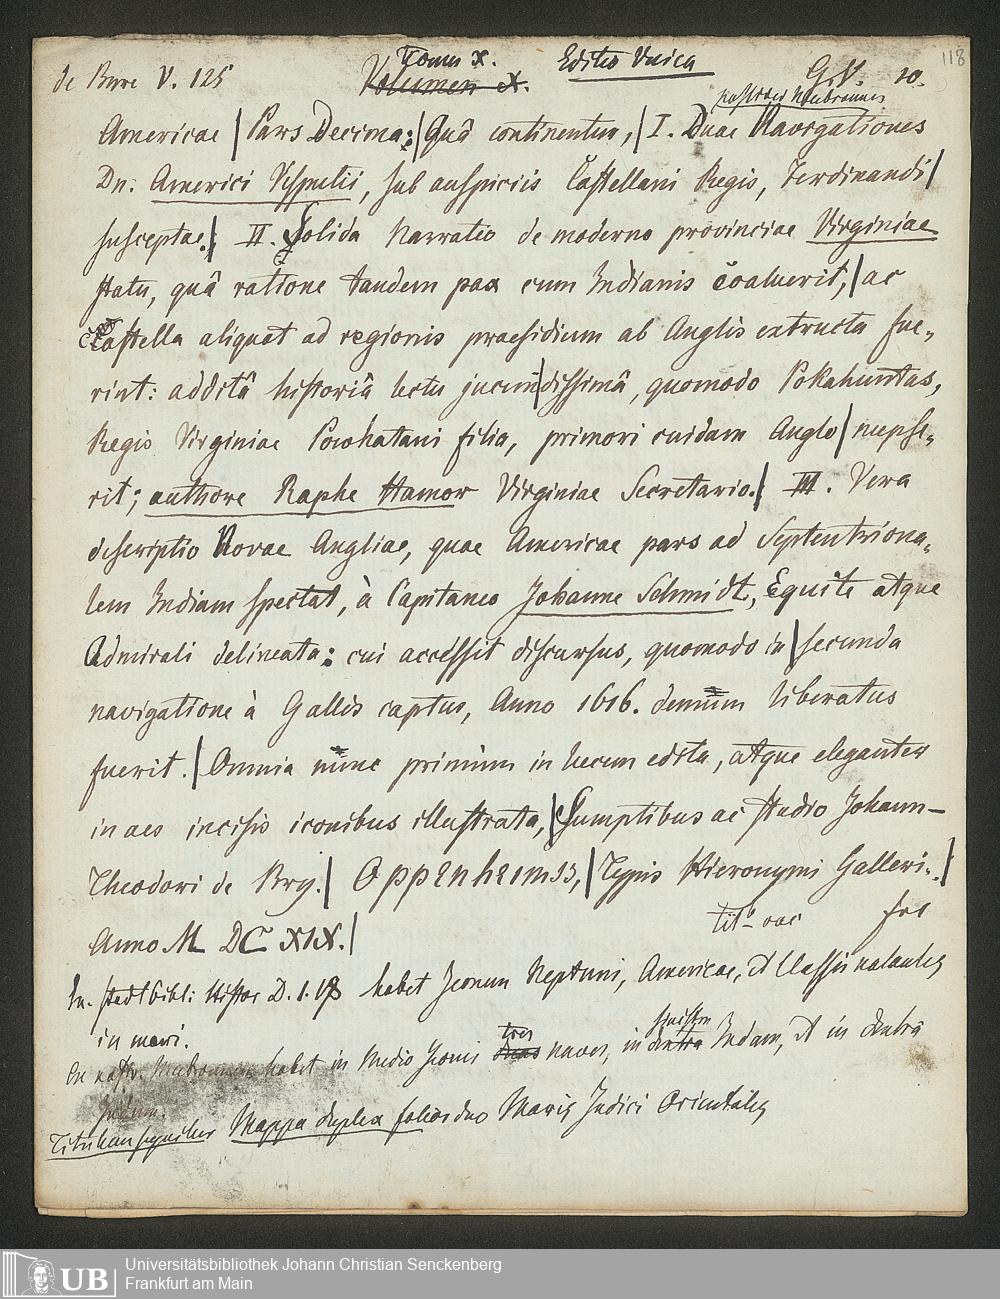 de Bure V. 125 Tomus X. Editio Unica G.V. 10. 118
Volumen X.
Americae | Pars Decima: | Quâ continentur, | I. Duae Navigationes
Dn. Americi Vesputii, sub auspiciis Castellani Regis, Ferdinandi |
susceptae. | II. Solida Narratio de moderno provinciae Virginiae
statu, quâ ratione tandem pax cum Indianis coaluerit, | ac
castella aliquot ad regionis praesidium ab Anglis extructa fue„
rint: additâ historiâ lectu jucun|dissimâ, quomodo Pokahuntas,
Regis Virginiae Powhatani filia, primori cuidam Anglo | nupse„
rit; authore Raphe Hamor Virginiae Secretario. | III. Vera
descriptio Novae Angliae, quae Americae pars ad Septentriona„
lem Indiam spectat, à Capitaneo Johanne Schmidt, Equite atque
Admirali delineata: cui accessit discursus, quomodo in | secunda
navigatione à Gallis captus, Anno 1616. demum liberatus
fuerit. | Omnia nunc primùm in lucem edita, atque eleganter
in aes incisis iconibus illustrata, | Sumptibus ac studio Johann-
Theodori de Bry. | Oppenheimii, | Typis Hieronymi Galleri. |
Anno M DC XIX. |
habet Iconem Neptuni, Americae, et
in mari.
habet in medio Iconis tres duas naves, in sinistra dextra Indam, et in dextra
Indum.
Mappa duplex folior duo Maris Indici Orientalis
Universitätsbibliothek Johann Christian Senckenberg
Frankfurt am Main
UB